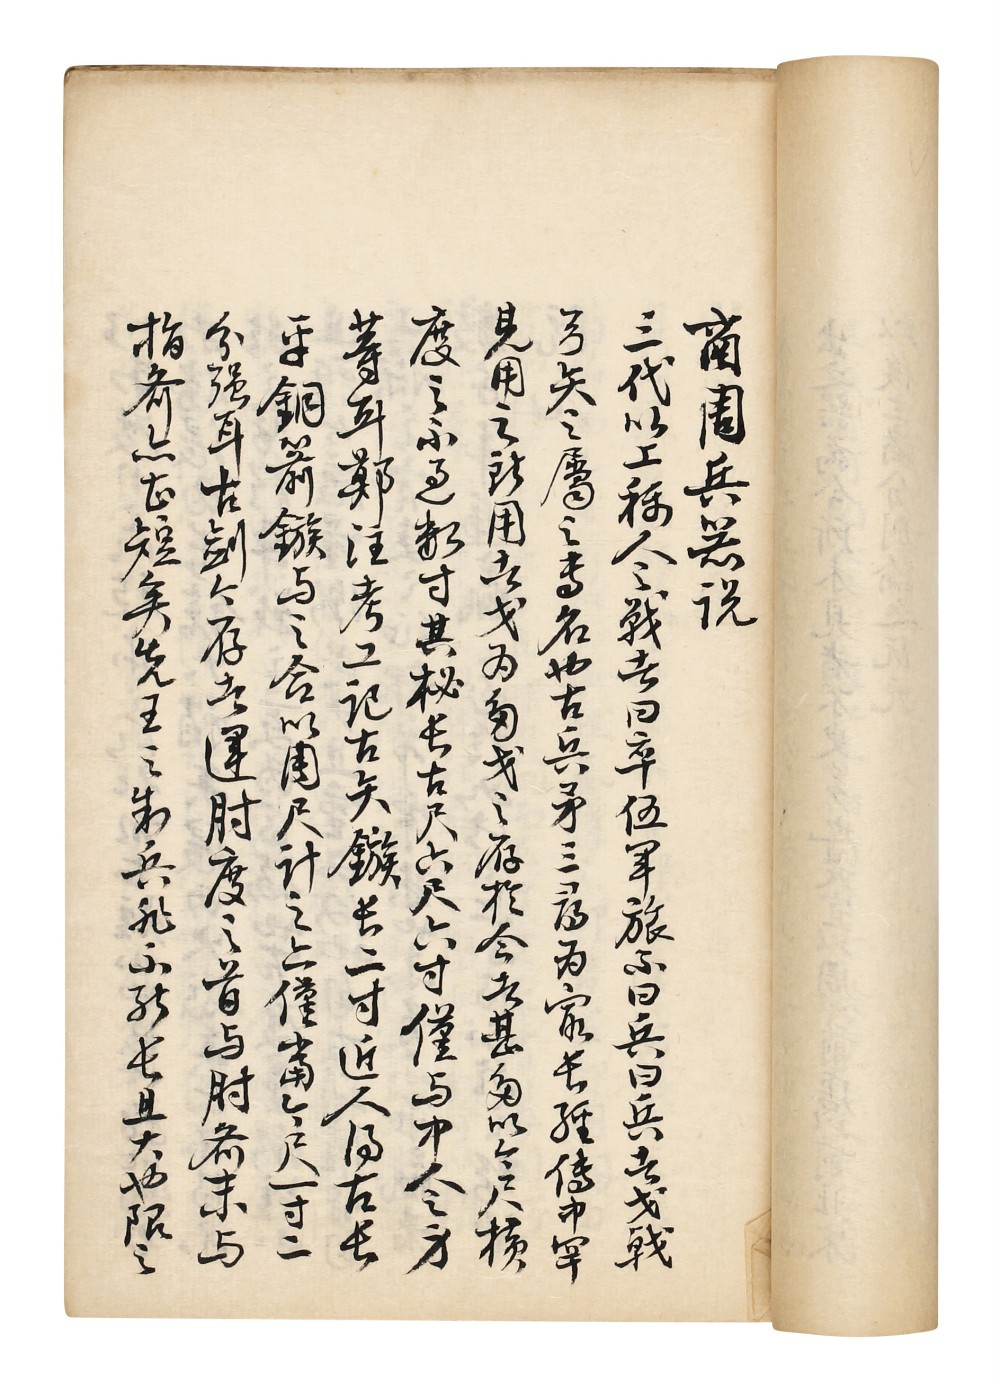 商周兵器説
三代以上稱人之戰者曰卒伍軍旅不曰兵曰兵者戈戟
弓矢之屬之專名也古兵矛三尋為最長經傳中罕
見用之所用者戈為多戈之存於今者甚多以今尺橫
度之不過數寸其柲長古尺六尺六寸僅与中人之身
等耳鄭注考工記古矢鏃長二寸近人得古長
平銅箭鏃与之合以周尺計之亦僅當今尺一寸二
分強耳古劍今存者運肘度之首与肘齊末与
指齊亦甚短矣先王之制兵非不能長且大也限之